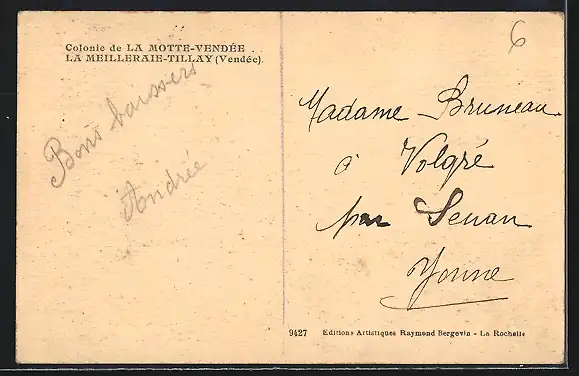 Colonie de LA MOTTE-VENDÉE
LA MEILLERAIE-TILLAY (Vendée).
Bons baissers
Andrée
6
Madame Bruneau
à Volgré
par Senan
Yonne
9427 Editions Artistiques Raymond Bergevin - La Rochelle